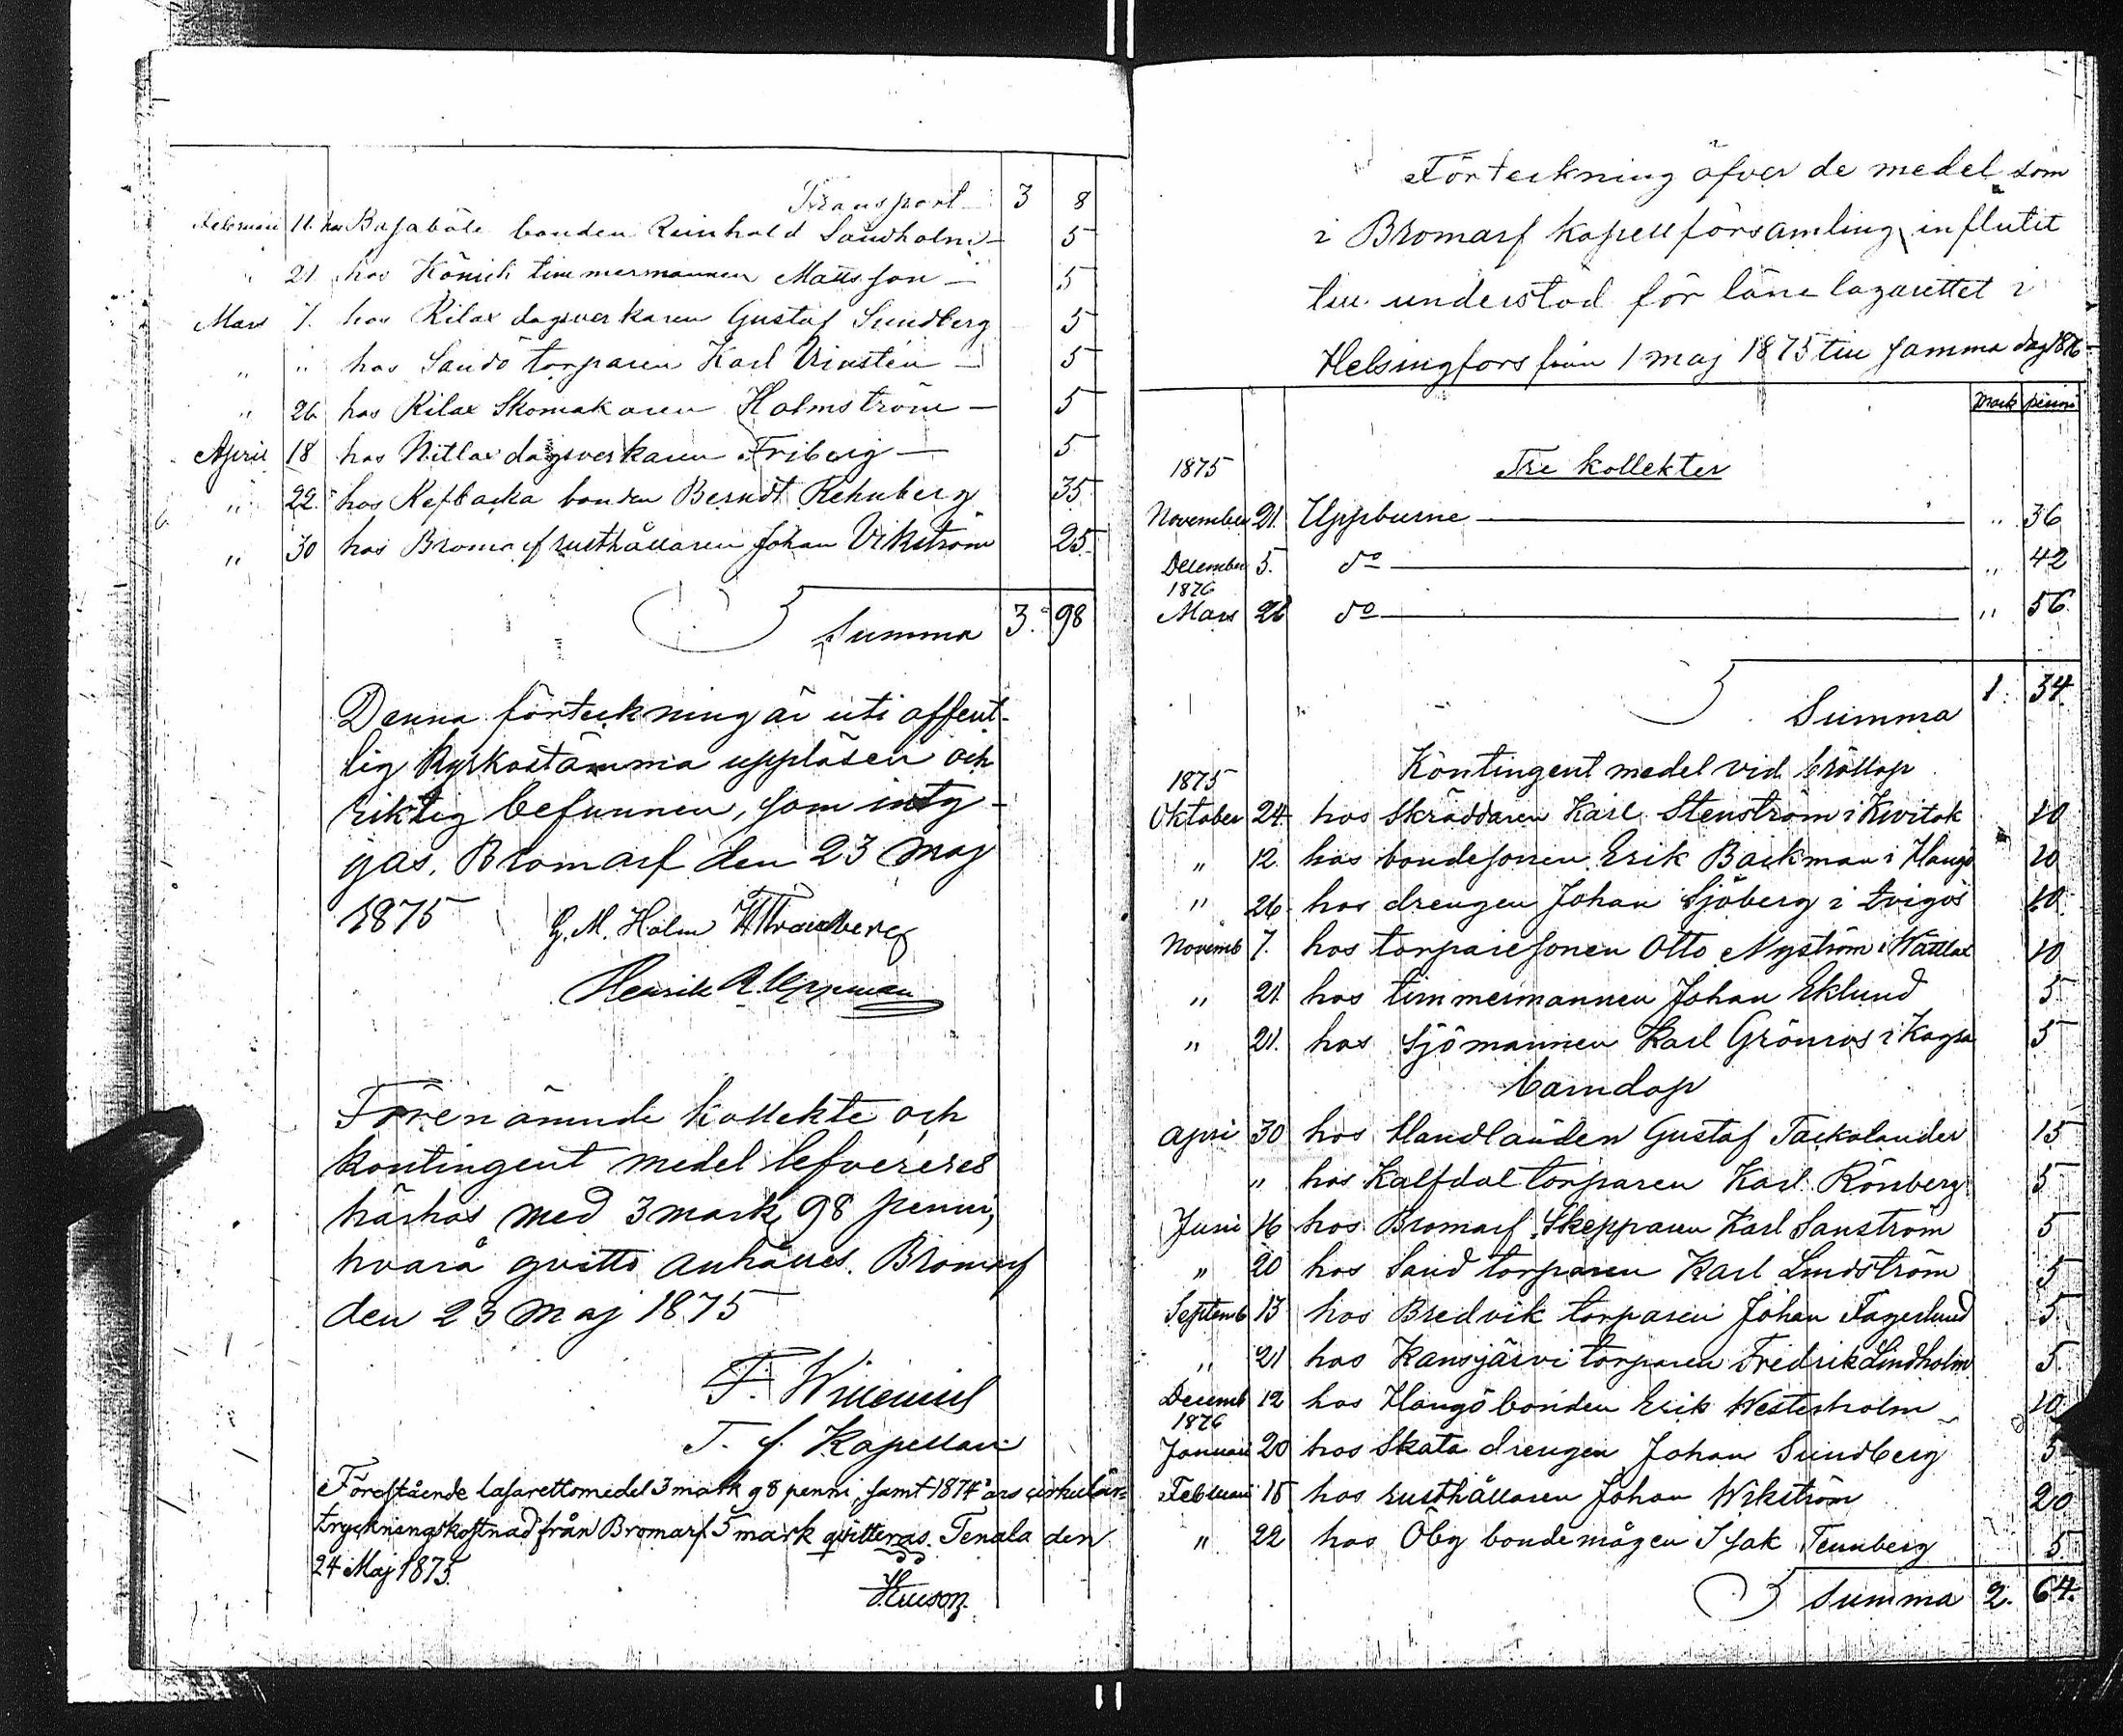 Transport 3 8
Februari 11. hos Basaböle bonden Reinhold Sandholm — 5
" 21 hos Könick timmermannen Mattsson — 5
Mars 7. hos Rilax dagsverkaren Gustaf Sundberg 5
" " hos Sandö torparen Karl — 5
" 26 hos Rilax Skomakaren Holmström — 5
April 18 hos Nitlax dagsverkaren Friberg — 5
" 22. hos Refbacka bonden Berndt Rehnberg 35
" 30 hos Bromarf rusthållaren Johan Vikström 25
Summa 3. 98
Denna förteckning är uti offent-
lig kyrkostämma uppläsen och
riktig befunnen, som inty-
gas. Bromarf den 23 Maj
1875 G. M. Holm
Henrik
Förenämnde kollekte och
kontingent medel lefvereres
härhos med 3 mark 98 penni,
hvarå qvitto anhålles. Bromarf
den 23 Maj 1875
F. Willenius
T. f. Kapellan
Förestående lasarettsmedel 3 mark 98 penni, samt 1874 års cirkulär-
tryckningskostnad från Bromarf 5 mark qvitteras. Tenala den
24 Maj 1875.
Förteckning öfver de medel som
i Bromarf kapellförsamling influtit
till understöd för läns lazarettet i
Helsingfors från 1 maj 1875 till samma dag 1876
Mark penni
1875 Tre kollekter
November 21. Uppburne — " 36
December 5. do — " 42
1876
Mars 26 do — " 56
Summa 1. 34
Kontingent medel vid bröllop
1875
Oktober 24. hos skräddaren Karl Stenström i Kvitok 10
" 12. hos bondesonen Erik Backman i Hangö 20
" 26. hos drengen Johan Sjöberg i 10
Novemb 7. hos torparesonen Otto Nyström i Nättlax 10
" 21. hos timmermannen Johan Eklund 5
" 21. hos Sjömannen Karl Grönros i Kagra 5
barndop
April 30 hos Handlanden Gustaf Tackolander 15
" hos Kalfdal torparen Karl Rönberg 5
Juni 16 hos Bromarf Skepparen Karl Sanström 5
" 20 hos Sand torparen Karl Lindström 5
Septemb 13 hos Bredvik torparen Johan Fagerlund 5
" 21 hos Kansjärvi torparen Fredrik Lindholm 5.
Decemb 12 hos Hangö bonden Erik Westerholm 10
1876
Januari 20 hos Skata drengen Johan Sundberg 5
Februari 15 hos rusthållaren Johan Wikström 20
" 22 hos Öby bondemågen Isak Tennberg 5.
Summa 2. 64.